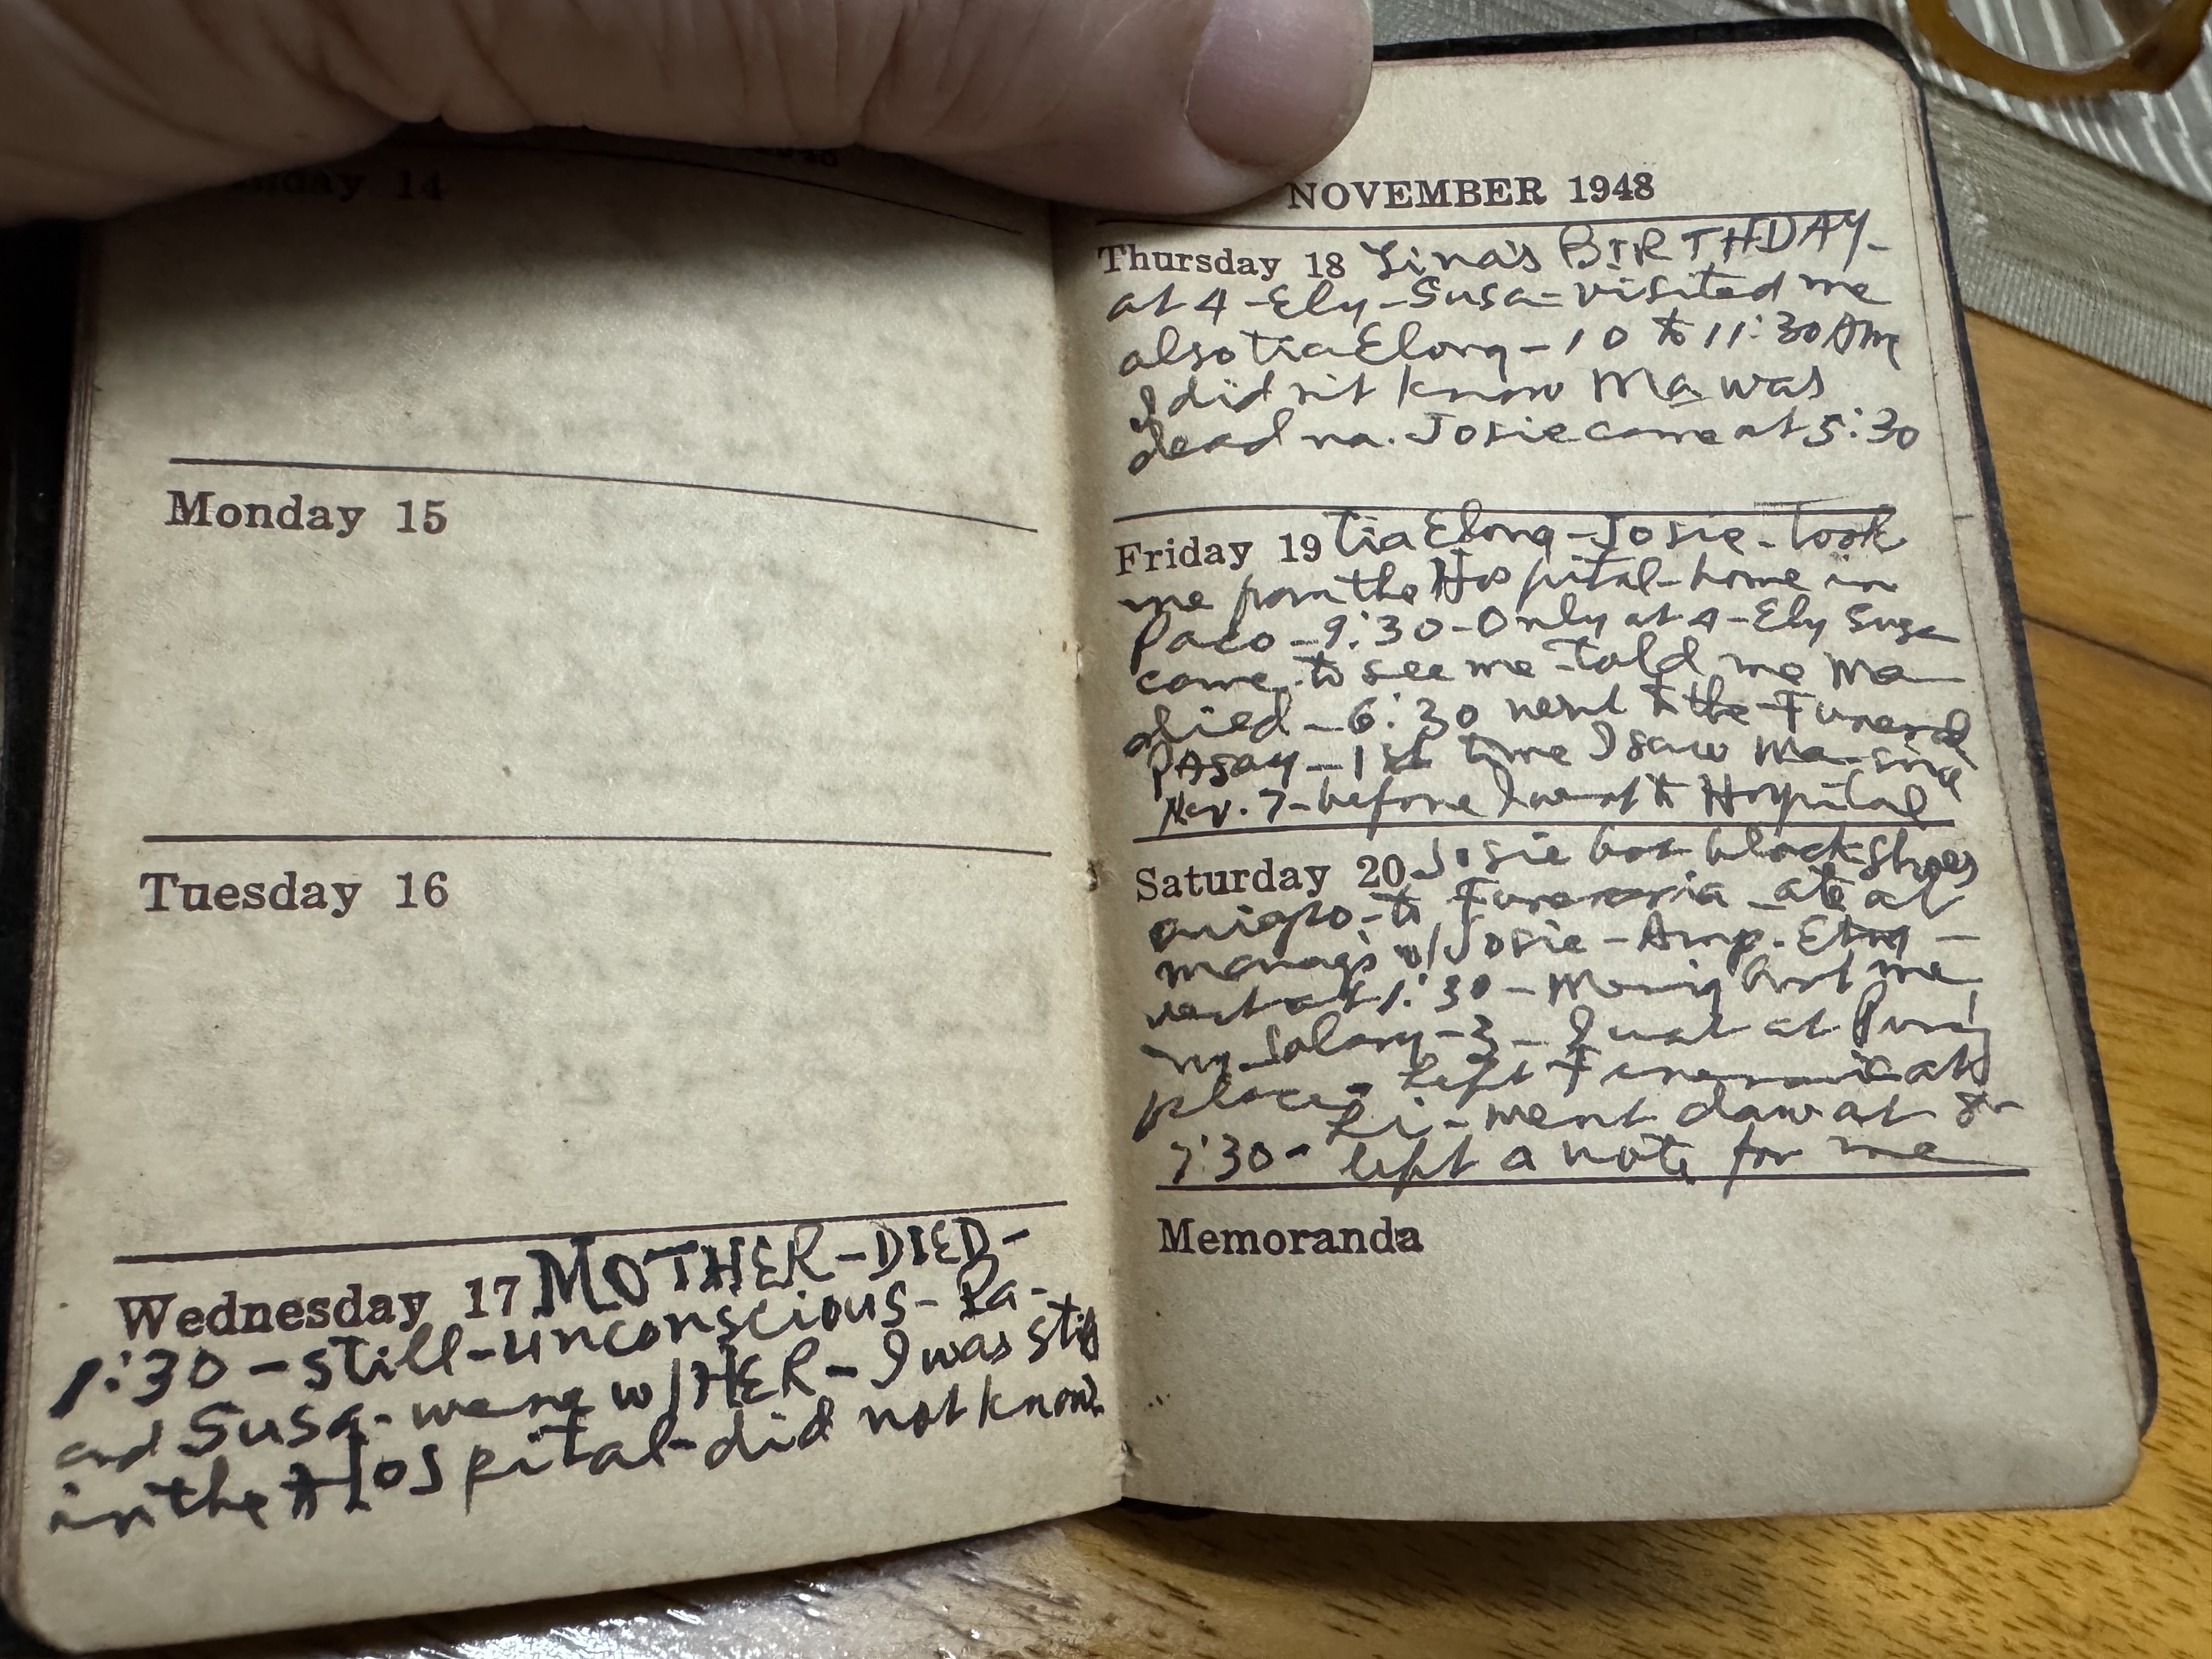 1948
nday 14
Monday 15
Tuesday 16
Wednesday 17 MOTHER-DIED-
1:30-still-unconscious-Pa-
and Susa-were w/HER-I was still
in the Hospital-did not know
NOVEMBER 1948
Thursday 18 Lina's BIRTHDAY-
at 4-Ely-Susa-visited me
also tia Elong-10 to 11:30 AM
I did n't know Ma was
dead na. Josie came at 5:30
Friday 19 Tia Elong-Josie-took
me from the Hospital-home in
Paco-9:30-Only at 4-Ely Susa
came to see me told me Ma
died-6:30 went to the Funeral
PAsay-1st time I saw Ma-since
Nov. 7-before I went to Hospital
Saturday 20 Josie bot black shoes
to Funeraria ate at
w/Josie-Amp.
at 1:30-
my salary-3-I at
place- left Funeraria at
- went daw at
7:30- left a note for me
Memoranda